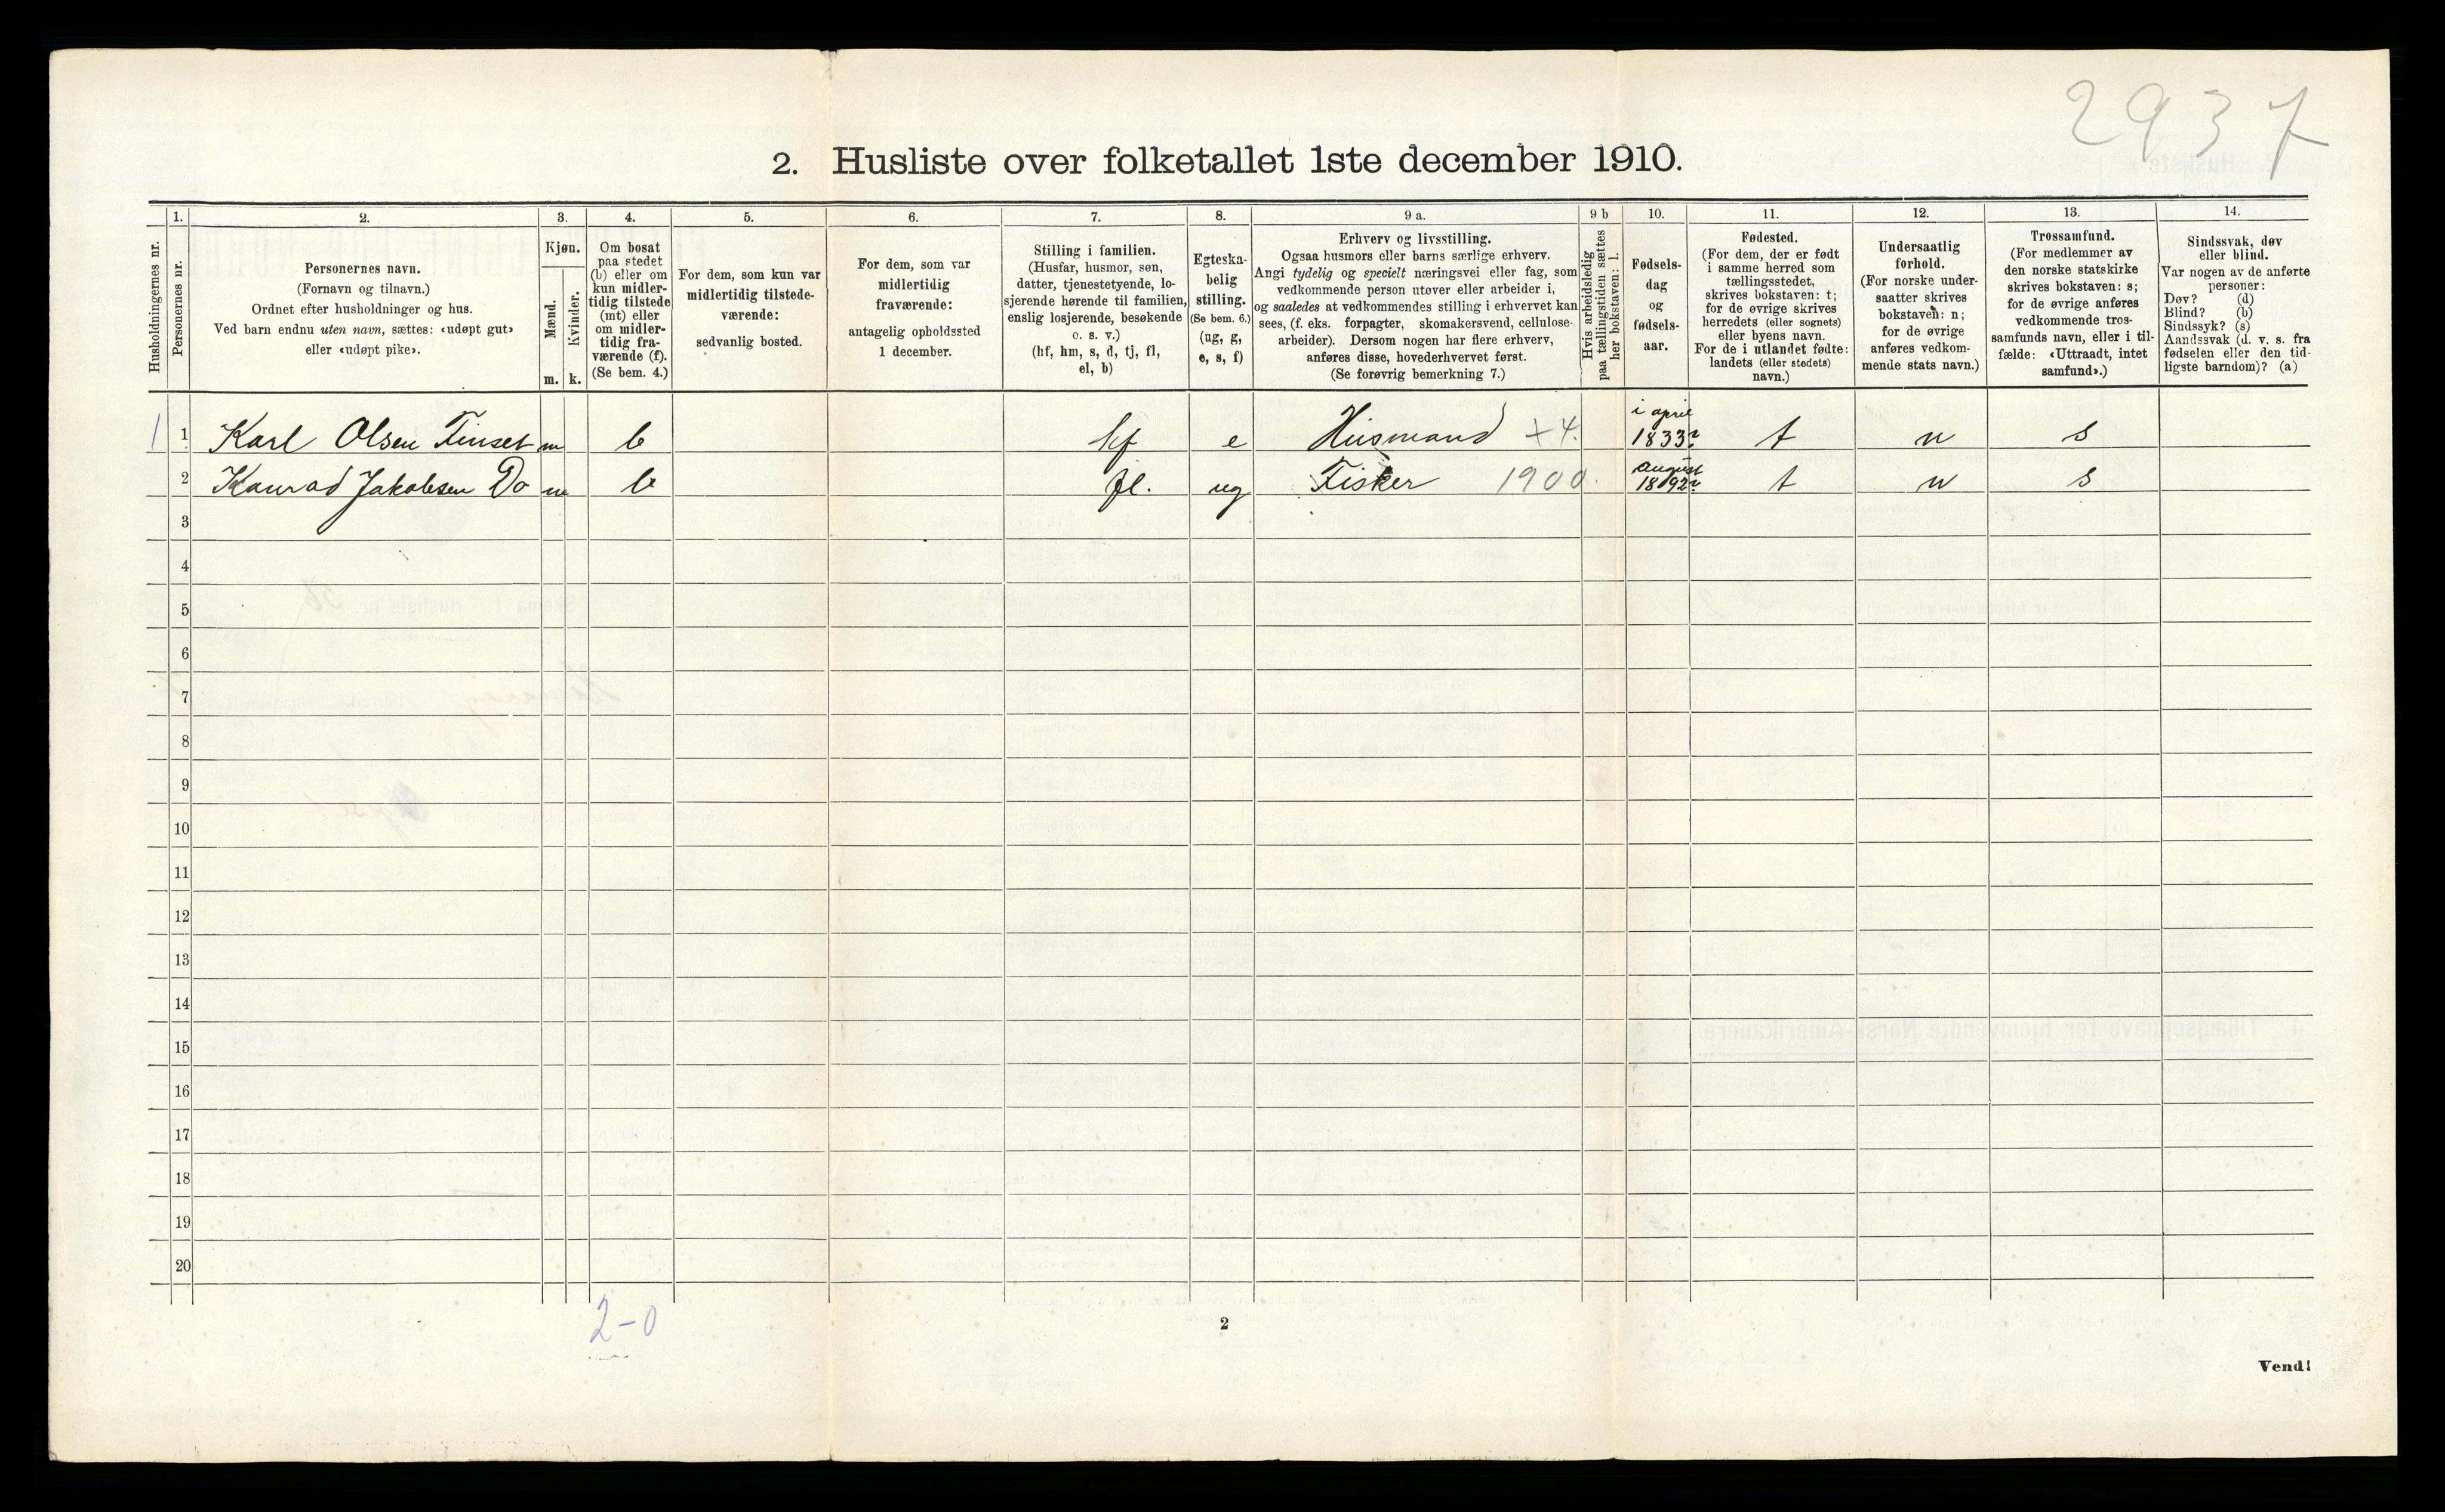 2937
2. Husliste over folketallet 1ste december 1910.
Husholdningernes nr.
1.
Personernes nr.
2.
Personernes navn.
(Fornavn og tilnavn.)
Ordnet efter husholdninger og hus.
Ved barn endnu uten navn, sættes: «udøpt gut»
eller «udøpt pike».
3.
Kjøn.
Mænd.
Kvinder.
m. k.
4.
Om bosat
paa stedet
(b) eller om
kun midler-
tidig tilstede
(mt) eller
om midler-
tidig fra-
værende (f).
(Se bem. 4.)
5.
For dem, som kun var
midlertidig tilstede-
værende:
sedvanlig bosted.
6.
For dem, som var
midlertidig
fraværende:
antagelig opholdssted
1 december.
7.
Stilling i familien.
(Husfar, husmor, søn,
datter, tjenestetyende, lo-
sjerende hørende til familien,
enslig losjerende, besøkende
o. s. v.)
(hf, hm, s, d, tj, fl,
el, b)
8.
Egteska-
belig
stilling.
(Se bem. 6.)
(ug, g,
e, s, f)
9 a.
Erhverv og livsstilling.
Ogsaa husmors eller barns særlige erhverv.
Angi tydelig og specielt næringsvei eller fag, som
vedkommende person utøver eller arbeider i,
og saaledes at vedkommendes stilling i erhvervet kan
sees, (f. eks. forpagter, skomakersvend, cellulose-
arbeider). Dersom nogen har flere erhverv,
anføres disse, hovederhvervet først.
(Se forøvrig bemerkning 7.)
9 b
Hvis arbeidsledig
paa tællingstiden sættes
her bokstaven: l.
10.
Fødsels-
dag
og
fødsels-
aar.
11.
Fødested.
(For dem, der er født
i samme herred som
tællingsstedet,
skrives bokstaven: t;
for de øvrige skrives
herredets (eller sognets)
eller byens navn.
For de i utlandet fødte:
landets (eller stedets)
navn.)
12.
Undersaatlig
forhold.
(For norske under-
saatter skrives
bokstaven: n;
for de øvrige
anføres vedkom-
mende stats navn.)
13.
Trossamfund.
(For medlemmer av
den norske statskirke
skrives bokstaven: s;
for de øvrige anføres
vedkommende tros-
samfunds navn, eller i til-
fælde: «Uttraadt, intet
samfund».)
14.
Sindssvak, døv
eller blind.
Var nogen av de anførte
personer:
Døv? (d)
Blind? (b)
Sindssyk? (s)
Aandssvak (d. v. s. fra
fødselen eller den tid-
ligste barndom)? (a)
1 1 Karl Olsen Finset m b hf e Husmand +4. i april 1833? t n s
2 Konrad Jakobsen Do m b fl. ug Fisker 1900. august 1892? t n s
3
4
5
6
7
8
9
10
11
12
13
14
15
16
17
18
19
20
2-0
2
Vend!